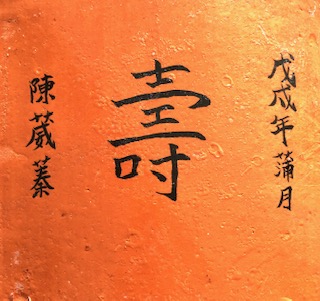 戊戌年蒲月
壽
陳葳蓁